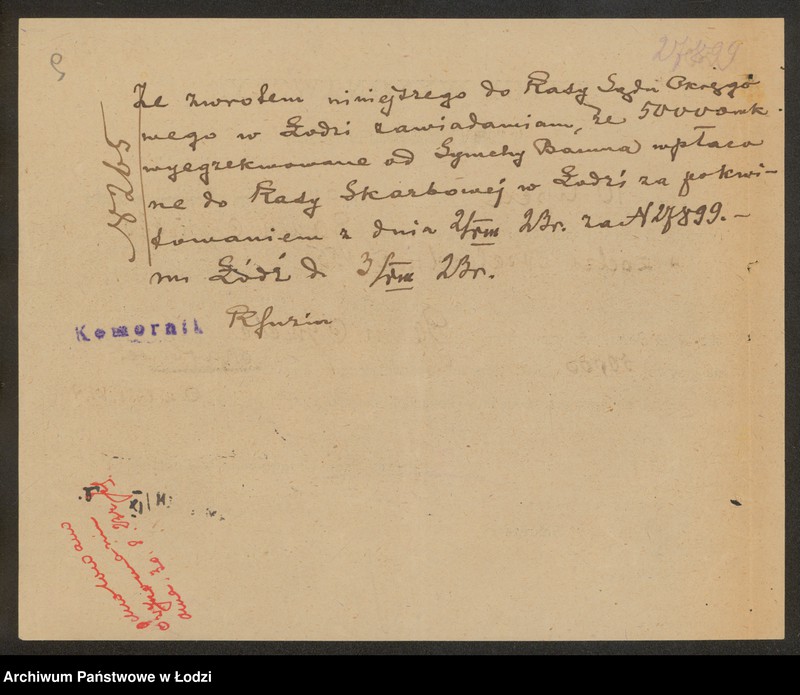 27899
9
8265
Ze zwrotem niniejszego do Kasy Sądu Okręgo
wego w Łodzi zawiadamiam, że 50000 mk
wyegzekwowane od Symchy Bauma wpłaco
ne do Kasy Skarbowej w Łodzi za pokwi-
towaniem z dnia 2/VIII 23r. za N 27899.-
m. Łódź d. 3/VIII 23r.
Komornik
Archiwum Państwowe w Łodzi